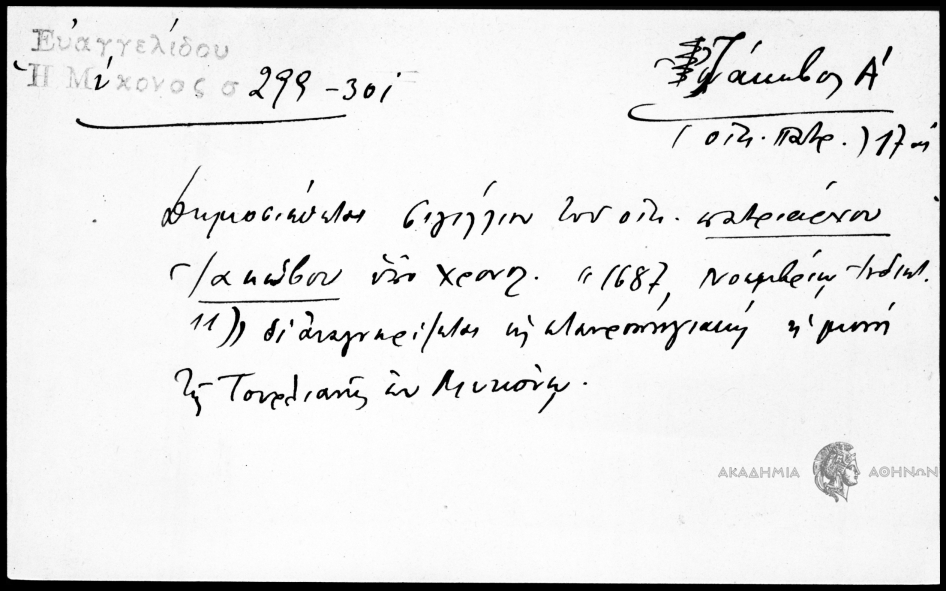 Εὐαγγελίδου
Ἡ Μύκονος σ 299-301
Ἰάκωβος Α΄
(οἰκ. πατρ.) 17 αἰ
Δημοσιεύεται σιγίλλιον τοῦ οἰκ. πατριάρχου
Ἰακώβου ὑπὸ χρονολ. "1687, Νοεμβρίῳ Ἰνδικτ.
11)) δι' ἀναγνωρίζεται ὡς σταυροπηγιακὴ ἡ μονὴ
τῆς Τουρλιανῆς ἐν Μυκόνῳ.
ΑΚΑΔΗΜΙΑ ΑΘΗΝΩΝ